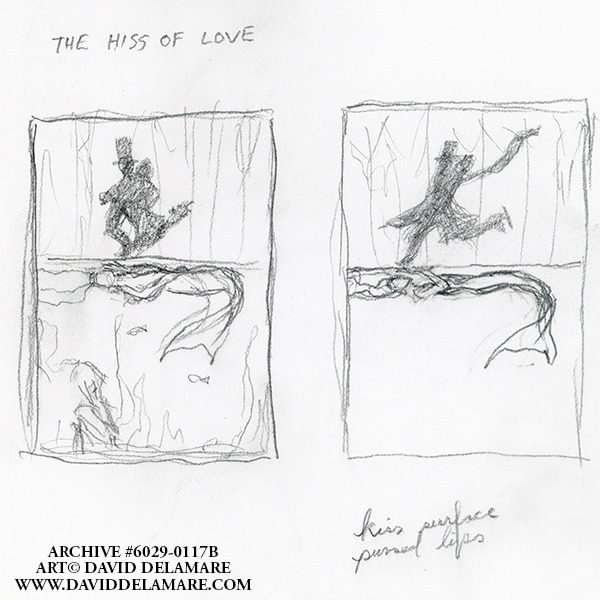 THE HISS OF LOVE
kiss surface
pursed lips
ARCHIVE #6029-0117B
ART© DAVID DELAMARE
WWW.DAVIDDELAMARE.COM